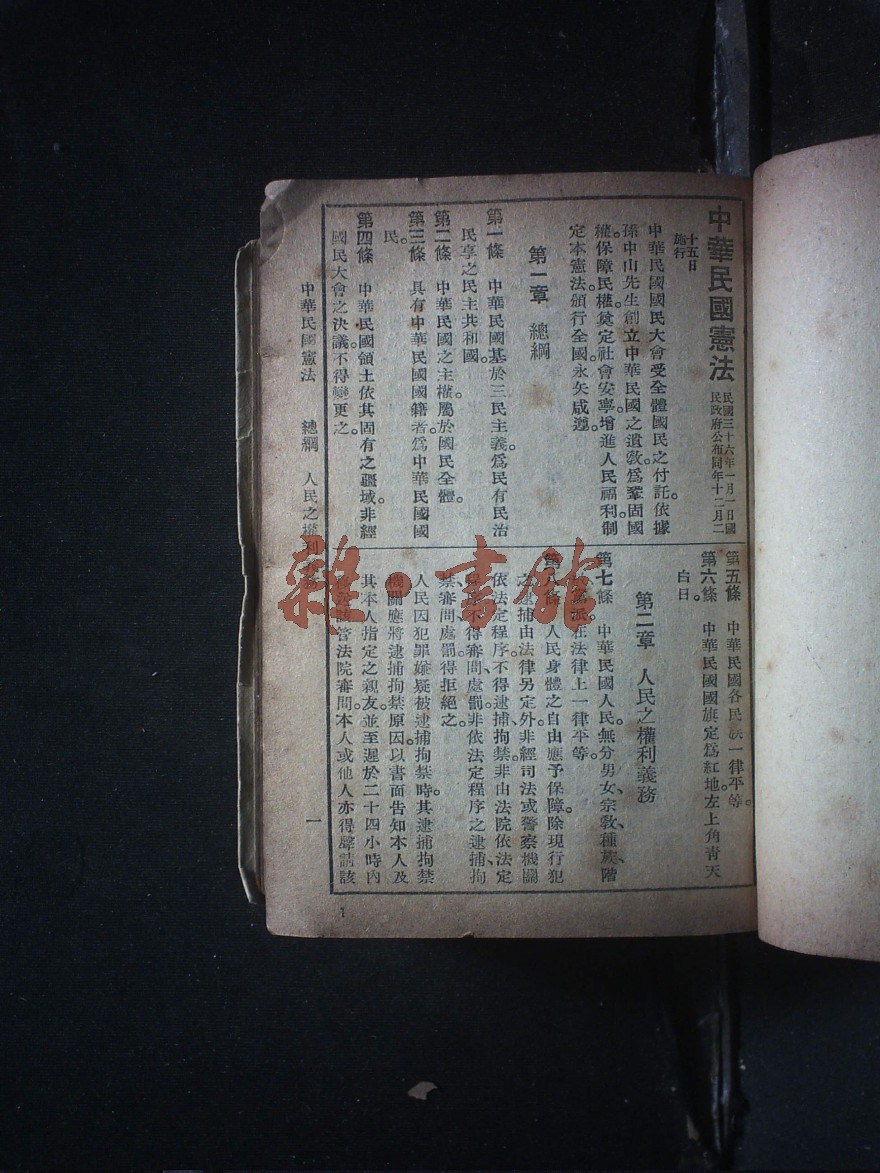 中華民國憲法
民國三十六年一月一日國
民政府公布同年十二月二
十五日
施行
中華民國國民大會受全體國民之付託。依據
孫中山先生創立中華民國之遺敎。爲鞏固國
權。保障民權。奠定社會安寧。增進人民福利。制
定本憲法。頒行全國。永矢咸遵。
第一章　總綱
第一條　中華民國基於三民主義。爲民有民治
民享之民主共和國。
第二條　中華民國之主權。屬於國民全體。
第三條　具有中華民國國籍者。爲中華民國國
民。
第四條　中華民國領土。依其固有之疆域。非經
國民大會之決議。不得變更之。
第五條　中華民國各民族一律平等。
第六條　中華民國國旗定爲紅地。左上角靑天
白日。
第二章　人民之權利義務
第七條　中華民國人民。無分男女、宗敎、種族、階
派。在法律上一律平等。
第八條　人民身體之自由應予保障。除現行犯
之逮捕由法律另定外。非經司法或警察機關
依法定程序。不得逮捕、拘禁。非由法院依法定
程序。不得審問處罰。非依法定程序之逮捕、拘
禁、審問、處罰。得拒絕之。
人民因犯罪嫌疑被逮捕拘禁時。其逮捕拘禁
機關應將逮捕拘禁原因。以書面告知本人及
其本人指定之親友。並至遲於二十四小時內
該管法院審問。本人或他人亦得聲請該
中華民國憲法　總綱　人民之權利義務
一
1
雜·書館